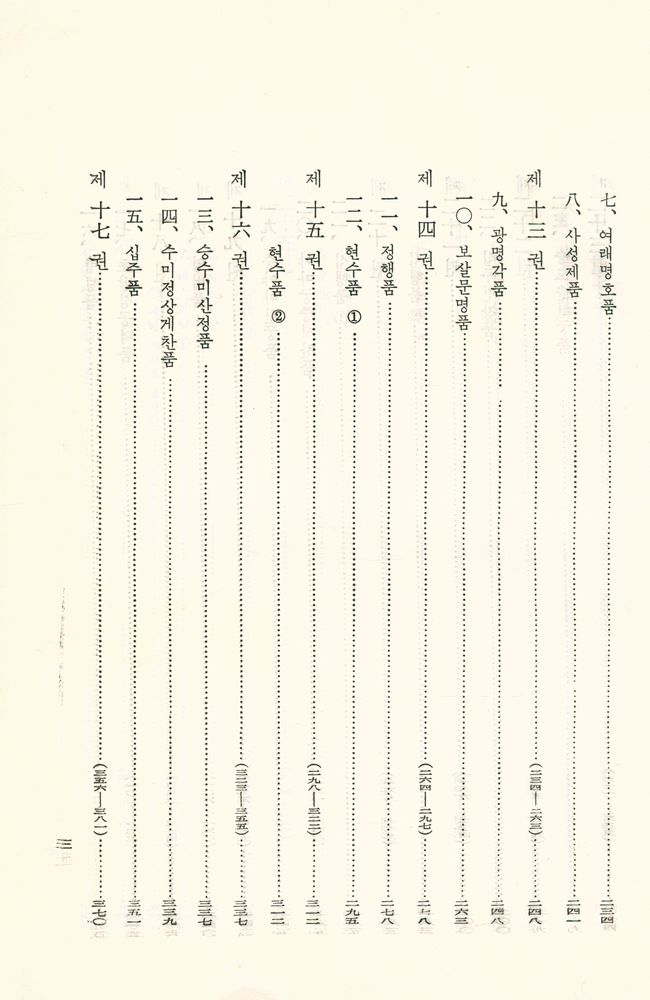 七、여래명호품 二三四
八、사성제품 二四一
제十三권 (二三四—二六三) 二四八
九、광명각품 二四八
一〇、보살문명품 二六三
제十四권 (二六四—二九七) 二七八
一一、정행품 二七八
一二、현수품 ① 二九五
제十五권 (二九八—三二二) 三一二
현수품 ② 三一二
제十六권 (三二三—三五五) 三三七
一三、승수미산정품 三三七
一四、수미정상게찬품 三三九
一五、십주품 三五一
제十七권 (三五六—三八一) 三七〇
三